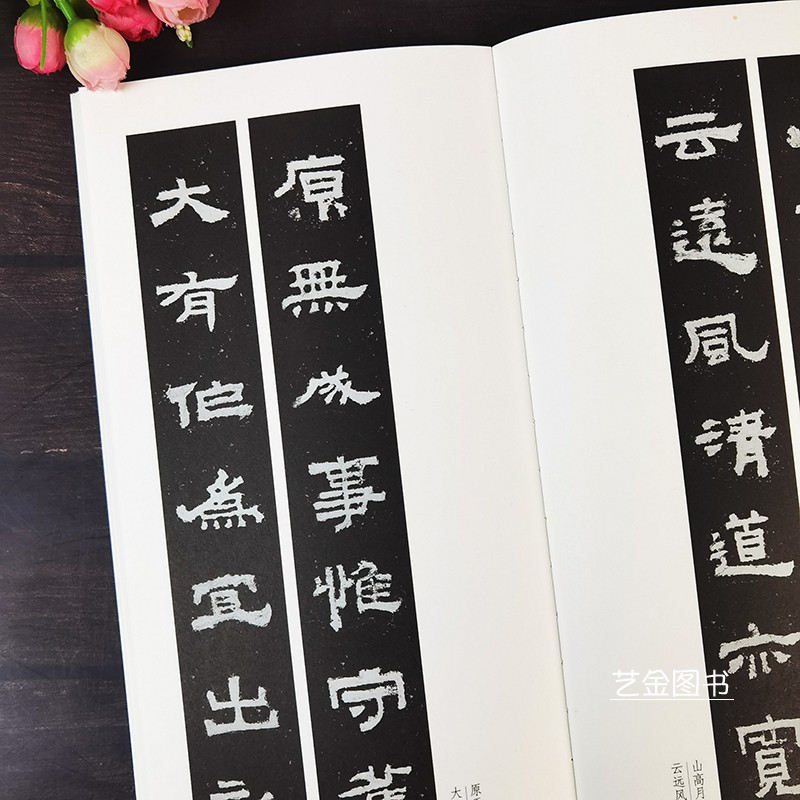 云遠風清道亦寬
原無成事惟守
大有作為宜出
山高月
云远风
原
大
艺金图书